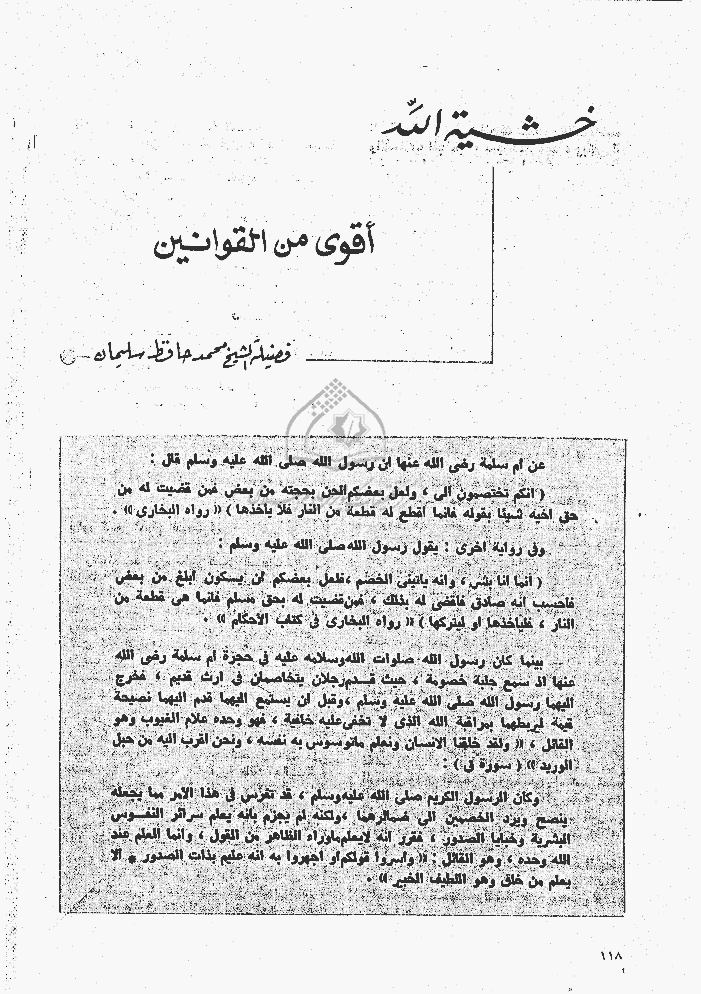 خشية الله
أقوى من القوانين
فضيلة الشيخ محمد حافظ سليمان
عن ام سلمة رضى الله عنها ان رسول الله صلى الله عليه وسلم قال :
( انكم تختصمون الى ، ولعل بعضكم الحن بحجته من بعض فمن قضيت له من
حق اخيه شيئا بقوله فانما اقطع له قطعة من النار فلا ياخذها ) « رواه البخارى » .
وفى رواية اخرى : يقول رسول الله صلى الله عليه وسلم :
( انما انا بشر ، وانه ياتينى الخصم ، فلعل بعضكم ان يسكون أبلغ من بعض
فاحسب انه صادق فاقضى له بذلك ، فمن قضيت له بحق مسلم فانما هى قطعة من
النار ، فلياخذها او ليتركها ) « رواه البخارى فى كتاب الأحكام » .
بينما كان رسول الله صلوات الله وسلامه عليه فى حجرة ام سلمة رضى الله
عنها اذ سمع جلبة خصومة ، حيث قدم رجلان يتخاصمان فى ارث قديم ، فخرج
اليهما رسول الله صلى الله عليه وسلم ، وقبل ان يستمع اليهما قدم اليهما نصيحة
قيمة لربطهما بمراقبة الله الذى لا تخفى عليه خافية ، فهو وحده علام الغيوب وهو
القائل ، « ولقد خلقنا الانسان ونعلم ماتوسوس به نفسه ، ونحن اقرب اليه من حبل
الوريد » ( سورة ق ) :
وكان الرسول الكريم صلى الله عليه وسلم ، قد تفرس فى هذا الأمر مما يجعله
ينصح ويرد الخصمين الى ضمائرهما ، ولكنه لم يجزم بانه يعلم سرائر النفسوس
البشرية وخبايا الصدور ، فقرر انه لايعلم ماوراء الظاهر من القول ، وانما العلم عند
الله وحده ، وهو القائل : « وأسروا قولكم او اجهروا به انه عليم بذات الصدور * الا
يعلم من خلق وهو اللطيف الخبير » .
١١٨